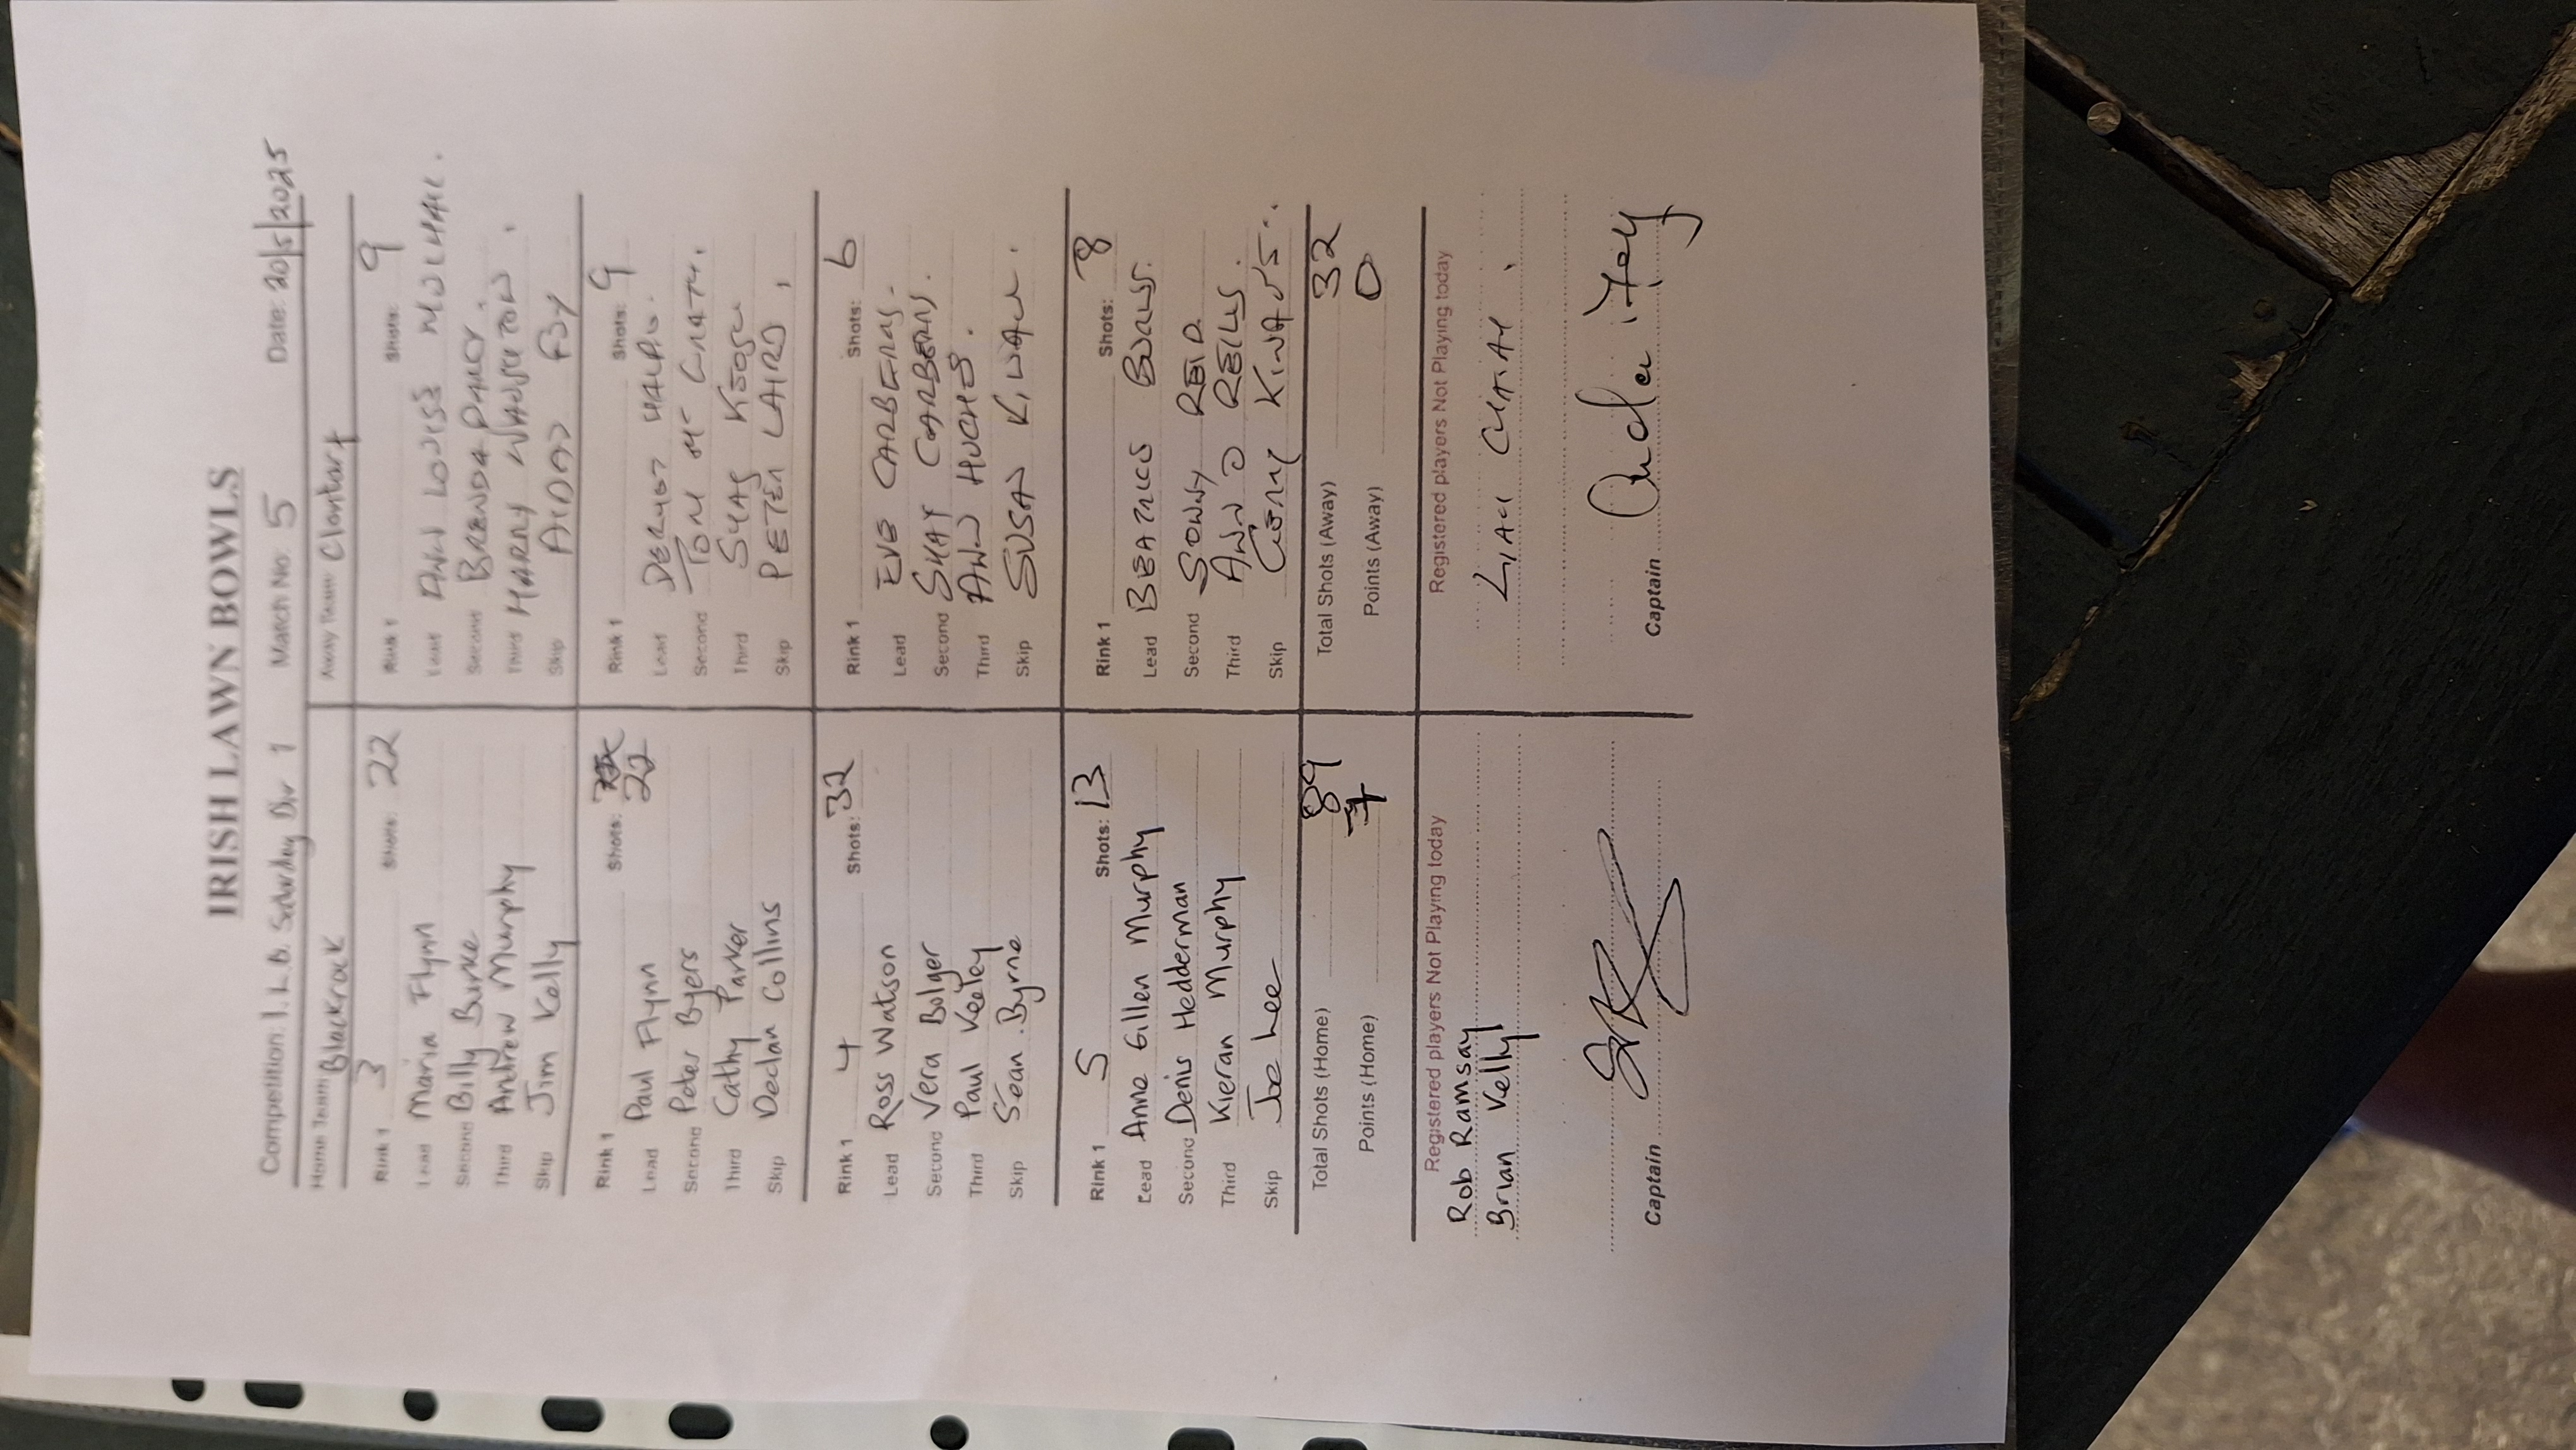 IRISH LAWN BOWLS
Competition: I.L.B. Saturday Div 1 Match No: 5 Date: 20/5/2025
Home Team Blackrock Away Team Clontarf
Rink 1 3 Shots: 22 Rink 1 Shots: 9
Lead Maria Flynn Lead ANN LOUISE
Second Billy Burke Second BRENDA DARCY.
Third Andrew Murphy Third HARRY
Skip Jim Kelly Skip AIDAN FOY
Rink 1 Shots: 22 Rink 1 Shots: 9
Lead Paul Flynn Lead DERMOT
Second Peter Byers Second TOM Mc GRATH.
Third Cathy Parker Third SHAY KEOGH
Skip Declan Collins Skip PETER LAIRD
Rink 1 4 Shots: 32 Rink 1 Shots: 6
Lead Ross Watson Lead EVE CARBERRY.
Second Vera Bolger Second SHAY CARBERRY.
Third Paul Keeley Third ANN HUGHES.
Skip Sean Byrne Skip SUSAN
Rink 1 5 Shots: 13 Rink 1 Shots: 8
Lead Anne Gillen Murphy Lead BEATRICE
Second Denis Hedderman Second SONNY REID
Third Kieran Murphy Third ANN O REILLY.
Skip Joe Lee Skip GERRY
Total Shots (Home) 89 Total Shots (Away) 32
Points (Home) 7 Points (Away) 0
Registered players Not Playing today Registered players Not Playing today
Rob Ramsay LIAM
Brian Kelly
Captain Captain